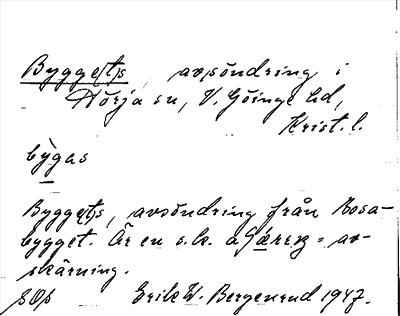 Bygge(t)s, avsöndring i
Hörja sn, V. Göinge hd,
Krist. l.
bỳgas
Bygge(t)s, avsöndring från Rosa-
bygget. Är en s.k. afjærrz = av-
skärning.
SOs Erik W. Bergenrud 1947.